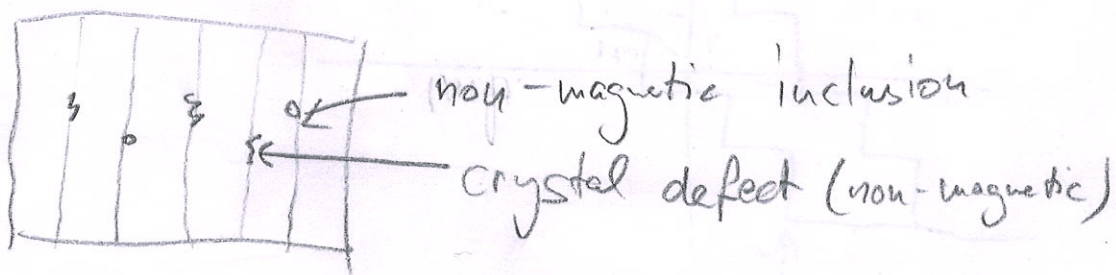 non-magnetic inclusion
crystal defect (non-magnetic)